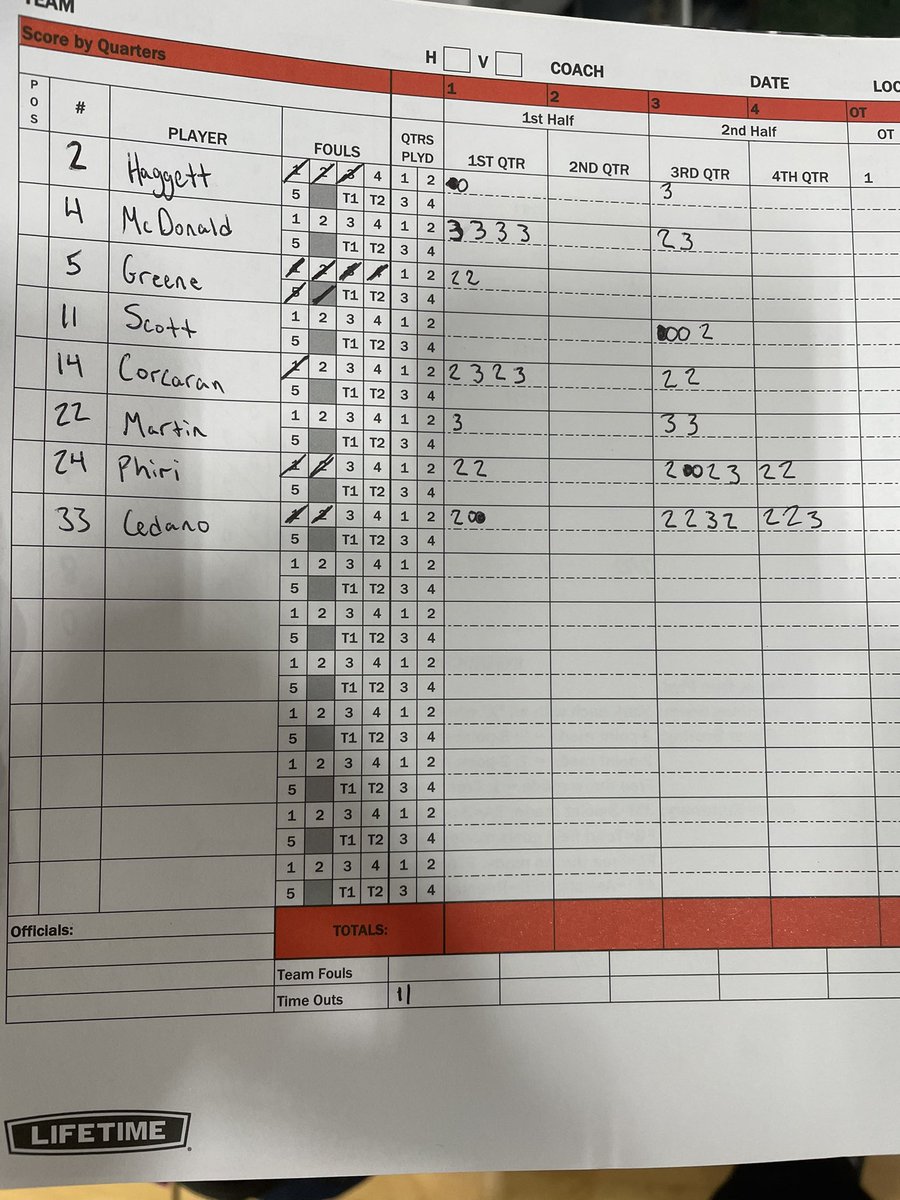 TEAM
Score by Quarters H V COACH DATE LOC
1 2 3 4 OT
1st Half 2nd Half OT
POS # PLAYER FOULS QTRS PLYD 1ST QTR 2ND QTR 3RD QTR 4TH QTR 1
2 Haggett 1 2 3 4 1 2 0 3
5 T1 T2 3 4
4 McDonald 1 2 3 4 1 2 3 3 3 3 2 3
5 T1 T2 3 4
5 Greene 1 2 3 4 1 2 2 2
5 T1 T2 3 4
11 Scott 1 2 3 4 1 2 0 0 0 2
5 T1 T2 3 4
14 Corcaran 1 2 3 4 1 2 2 3 2 3 2 2
5 T1 T2 3 4
22 Martin 1 2 3 4 1 2 3 3 3
5 T1 T2 3 4
24 Phiri 1 2 3 4 1 2 2 2 2 0 0 2 3 2 2
5 T1 T2 3 4
33 Cedano 1 2 3 4 1 2 2 0 0 2 2 3 2 2 2 3
5 T1 T2 3 4
1 2 3 4 1 2
5 T1 T2 3 4
1 2 3 4 1 2
5 T1 T2 3 4
1 2 3 4 1 2
5 T1 T2 3 4
1 2 3 4 1 2
5 T1 T2 3 4
1 2 3 4 1 2
5 T1 T2 3 4
1 2 3 4 1 2
5 T1 T2 3 4
1 2 3 4 1 2
5 T1 T2 3 4
Officials: TOTALS:
Team Fouls
Time Outs 11
LIFETIME